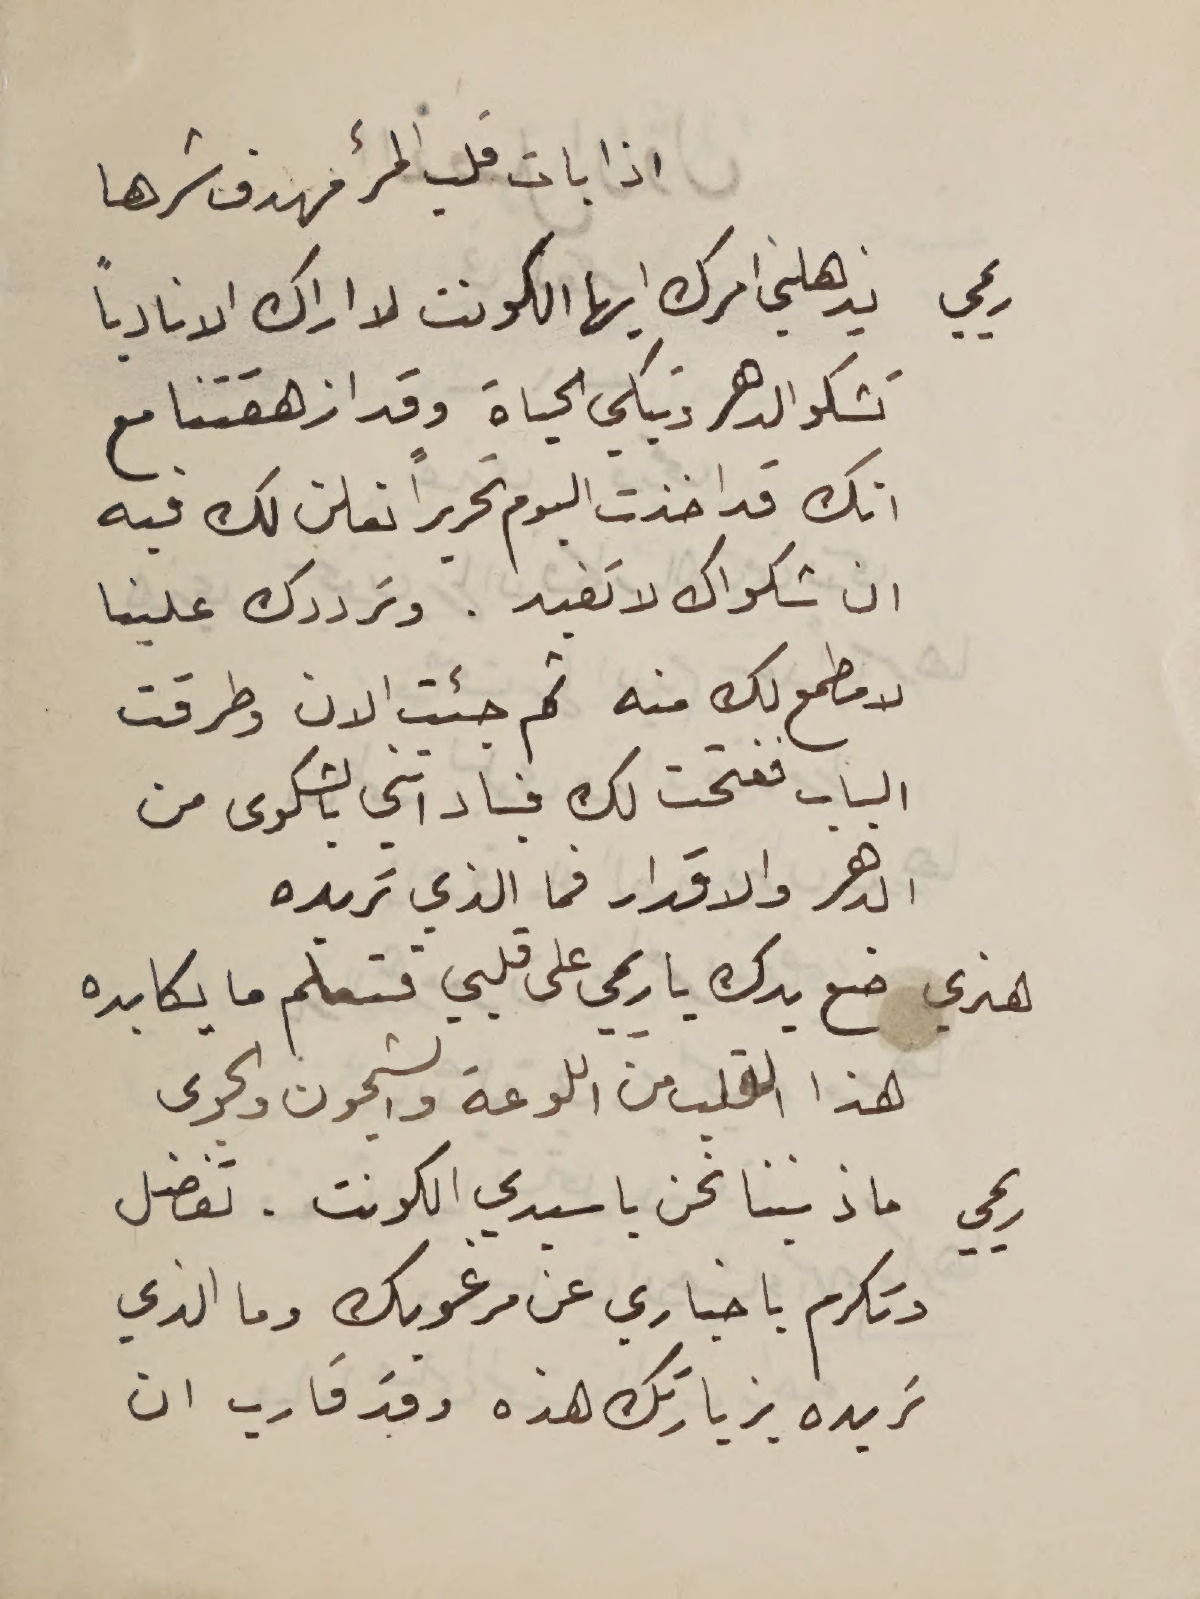 اذا بات قلب المرء مهدف شرها
ريمي يذهلني امرك ايها الكونت لا اراك الا نادباً
تشكو الدهر وتبكي الحياة وقد ازهقتنا مع
انك قد اخذت اليوم تحريراً تعلن لك فيه
ان شكواك لا تفيد . وترددك علينا
لا مطمع لك منه ثم جئت الان وطرقت
الباب ففتحت لك فباداتني بالشكوى من
الدهر والاقدار فما الذي تريده
هنري ضع يدك يا ريمي على قلبي فتعلم ما يكابده
هذا القلب من اللوعة والشجون والجوى
ريمي ما ذنبنا نحن يا سيدي الكونت . تفضل
وتكرم باخباري عن مرغوبك وما الذي
تريده بزيارتك هذه وقد قارب ان